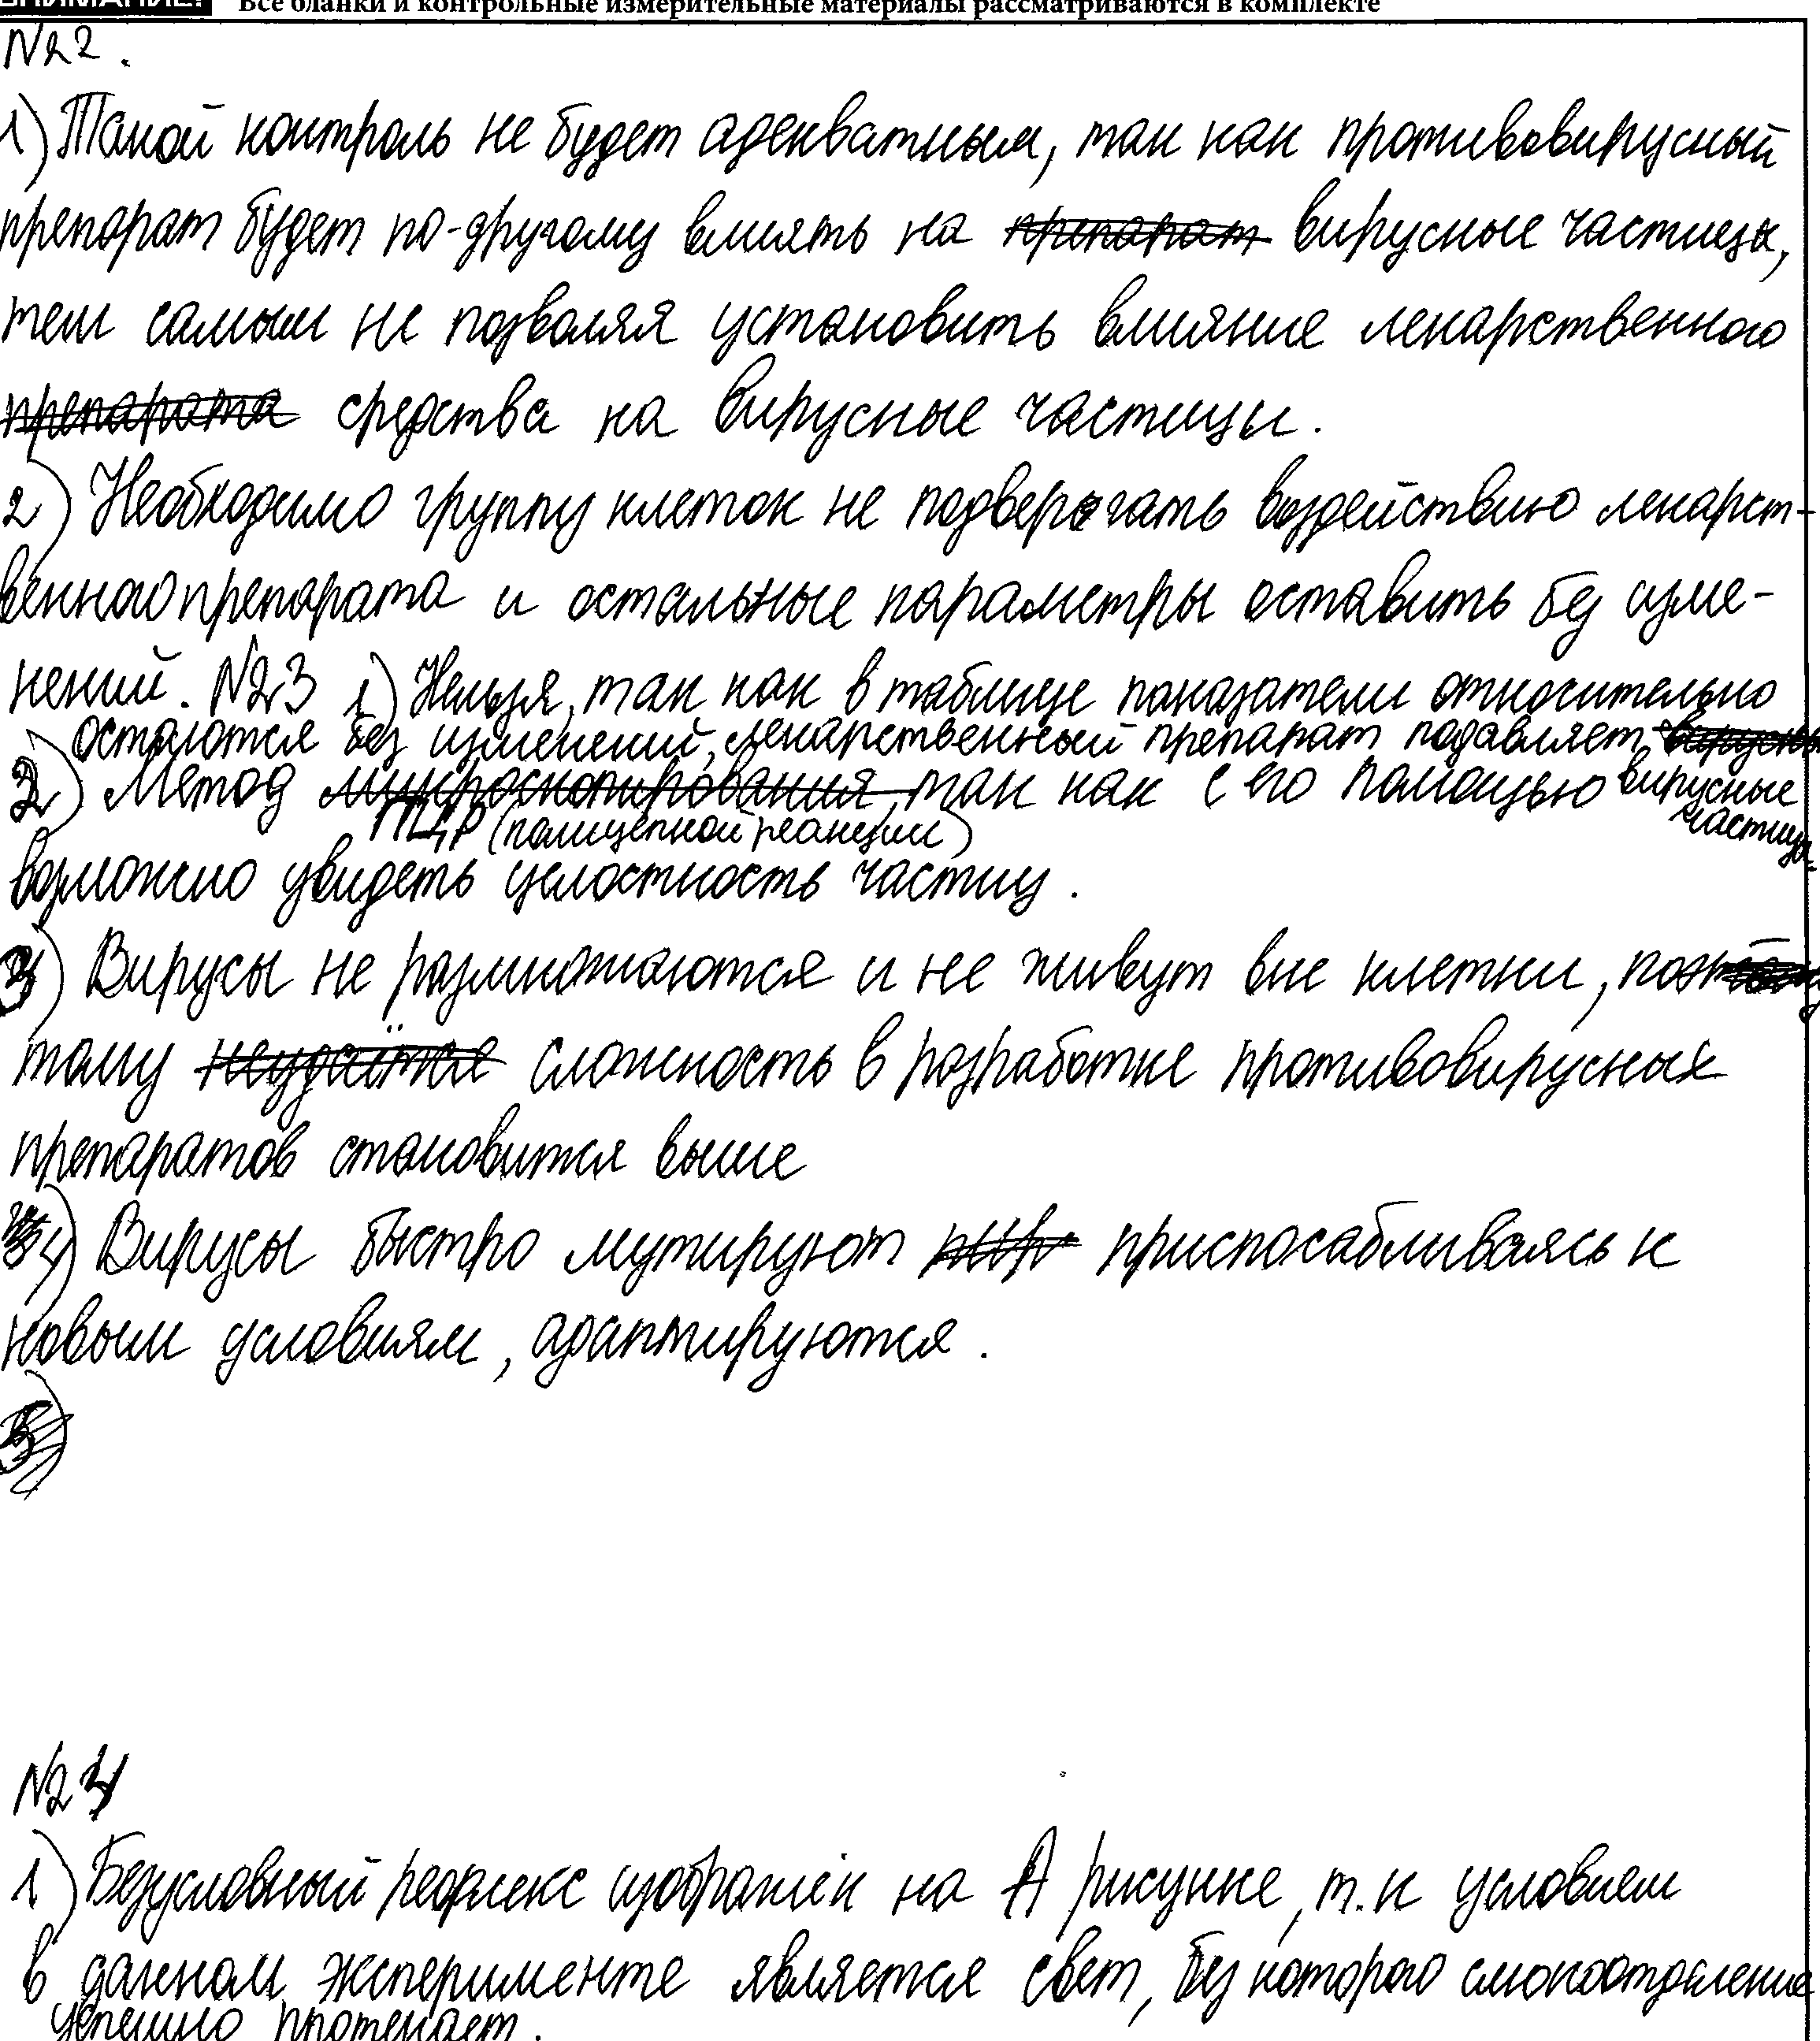 ВНИМАНИЕ! Все бланки и контрольные измерительные материалы рассматриваются в комплекте
N22.
1) Такой контроль не будет адекватным, так как противовирусный
препарат будет по-другому влиять на препарат вирусные частицы,
тем самым не позволяя установить влияние лекарственного
препарата средства на вирусные частицы.
2) Необходимо группу клеток не подвергать воздействию лекарст-
венного препарата и остальные параметры оставить без изме-
нений. N23 1) Нельзя, так как в таблице показатели относительно
остаются без изменений, лекарственный препарат подавляет вирусные
вирусные частицы.
2) Метод микроскопирования, так как с его помощью
ПЦР (полицепной реакции)
возможно увидеть целостность частиц.
3) Вирусы не размножаются и не живут вне клетки, поэ
тому неудаётся сложность в разработке противовирусных
препаратов становится выше
4) Вирусы быстро мутируют приспосабливаясь к
новым условиям, адаптируются.
5)
N24
1) Безусловный рефлекс изображён на А рисунке, т.к условием
в данном эксперименте является свет, без которого слюноотделение
успешно протекает.